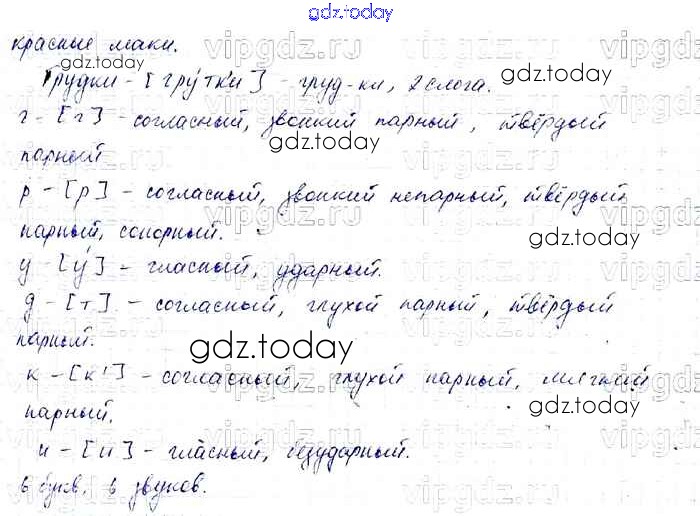 gdz.today
красные маки.
Грудки - [грýтк'и] - груд-ки, 2 слога.
г - [г] - согласный, звонкий парный, твёрдый
парный
р - [р] - согласный, звонкий непарный, твёрдый
парный, сонорный.
у - [у́] - гласный, ударный.
д - [т] - согласный, глухой парный, твёрдый
парный.
к - [к'] - согласный, глухой парный, мягкий
парный.
и - [и] - гласный, безударный.
6 букв, 6 звуков.